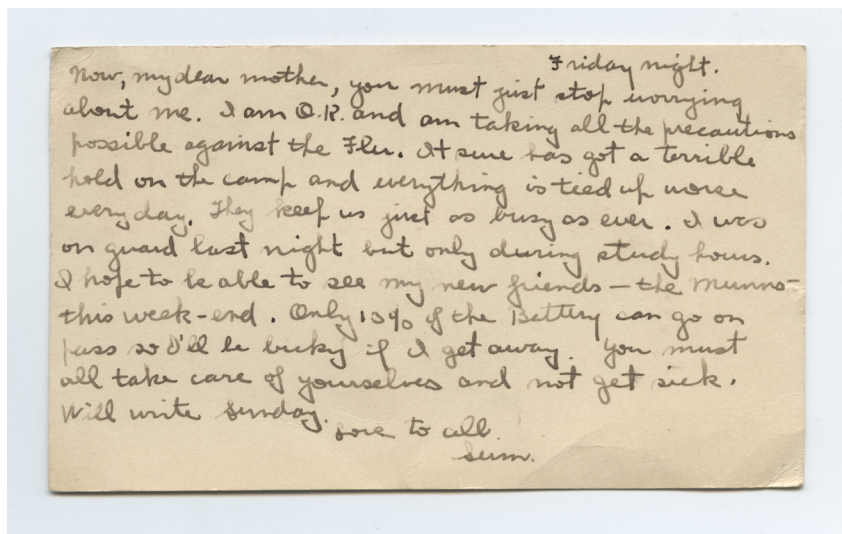 Friday night.
Now, my dear mother, you must just stop worrying
about me. I am O.K. and am taking all the precautions
possible against the Flu. It sure has got a terrible
hold on the camp and everything is tied up worse
every day. They keep us just as busy as ever. I was
on guard last night but only during study hours.
I hope to be able to see my new friends – the Munns –
this week-end. Only 10% of the Battery can go on
pass so I'll be lucky if I get away. You must
all take care of yourselves and not get sick.
Will write Sunday.
Love to all.